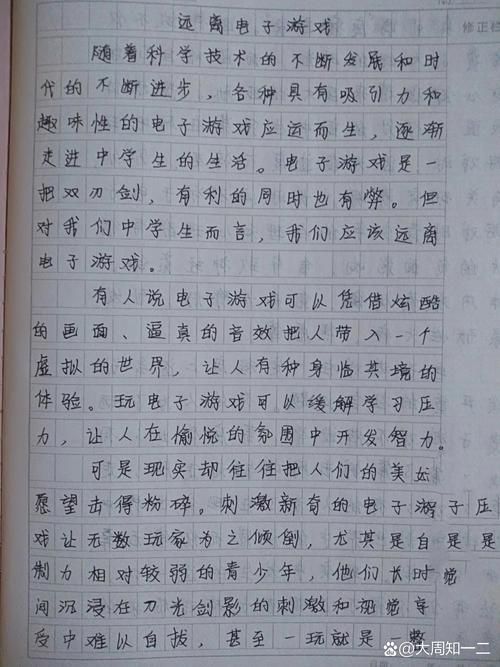 修正栏
远离电子游戏
随着科学技术的不断发展和时
代的不断进步，各种具有吸引力和
趣味性的电子游戏应运而生，逐渐
走进中学生的生活。电子游戏是一
把双刃剑，有利的同时也有弊。但
对我们中学生而言，我们应该远离
电子游戏。
有人说电子游戏可以凭借炫酷
的画面、逼真的音效把人带入一个
虚拟的世界，让人有种身临其境的
体验。玩电子游戏可以缓解学习压
力，让人在愉悦的氛围中开发智力。
可是现实却往往把人们的美好
愿望击得粉碎。刺激新奇的电子游子压
戏让无数玩家为之倾倒，尤其是自是是
制力相对较弱的青少年，他们长时觉
间沉浸在刀光剑影的刺激和视觉享
受中难以自拔，甚至一玩就是一整
@大周知一二